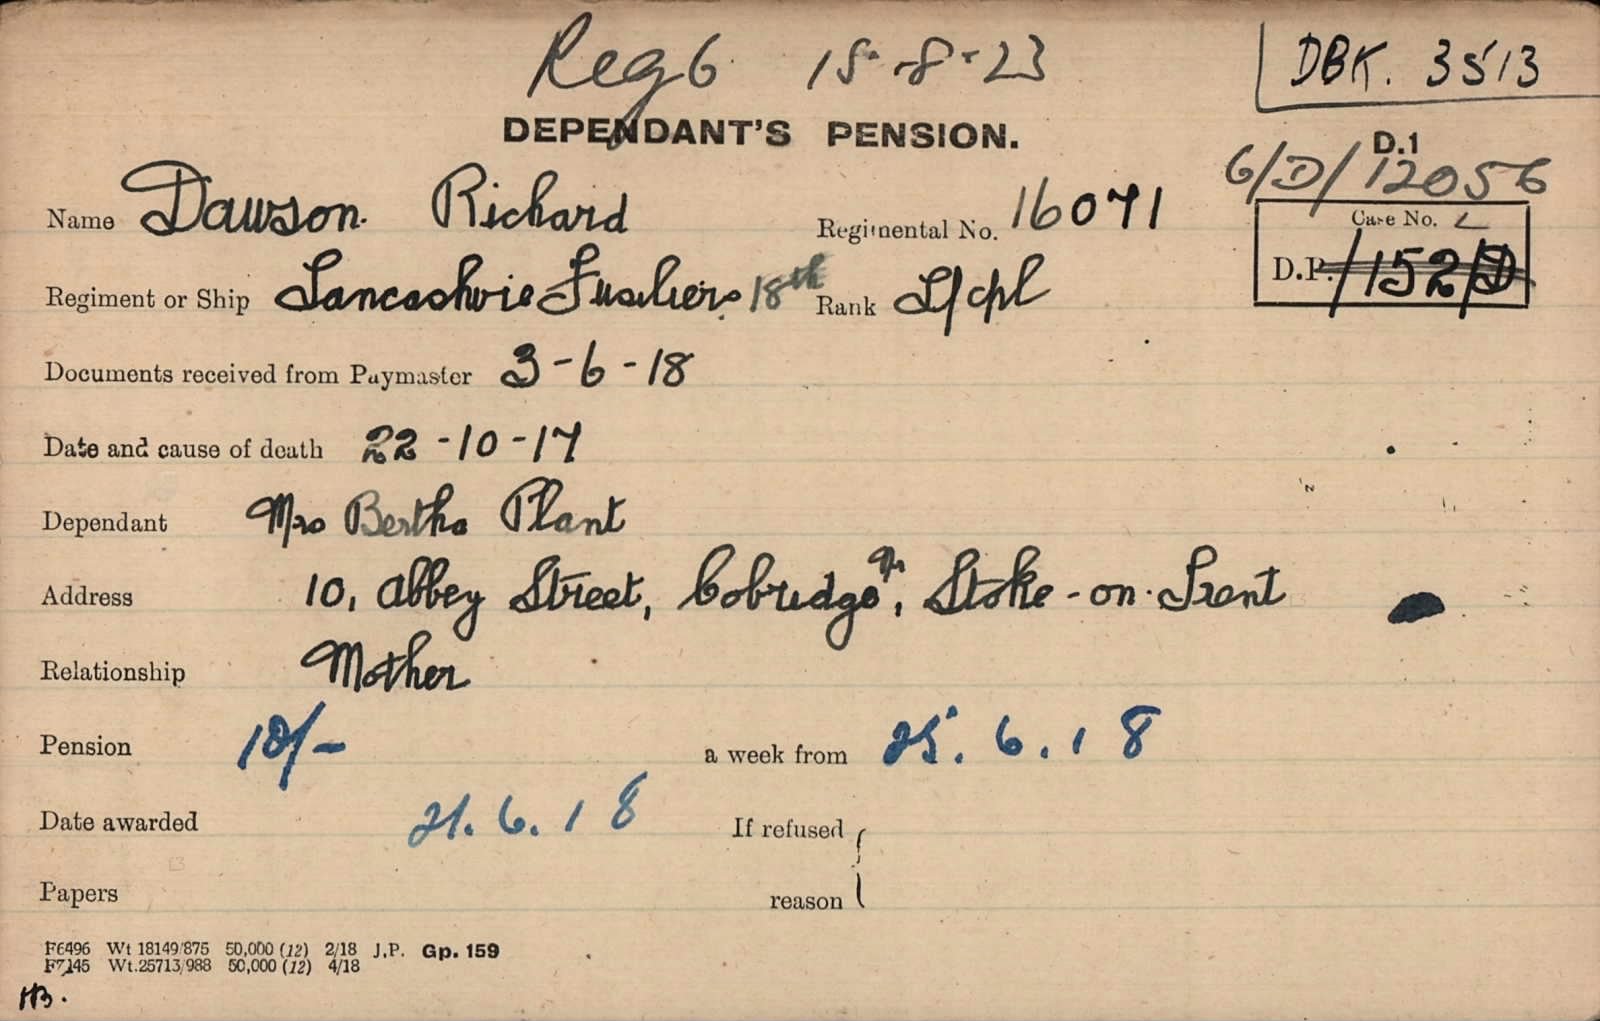 Reg 6 15-8-23 DBK. 3513
DEPENDANT'S PENSION. D.1
6/D/12056
Name Dawson Richard Regimental No. 16071 Case No.
Regiment or Ship Lancashire Fusiliers 18th Rank L/cpl D.P. /152/D
Documents received from Paymaster 3-6-18
Date and cause of death 22-10-17
Dependant Mrs Bertha Plant
Address 10, Abbey Street, Cobridge, Stoke-on-Trent
Relationship Mother
Pension 10/- a week from 25.6.18
Date awarded 21.6.18 If refused
Papers reason
F6496 Wt 18149/875 50,000 (12) 2/18 J.P. Gp. 159
F7145 Wt.25713/988 50,000 (12) 4/18
HB.